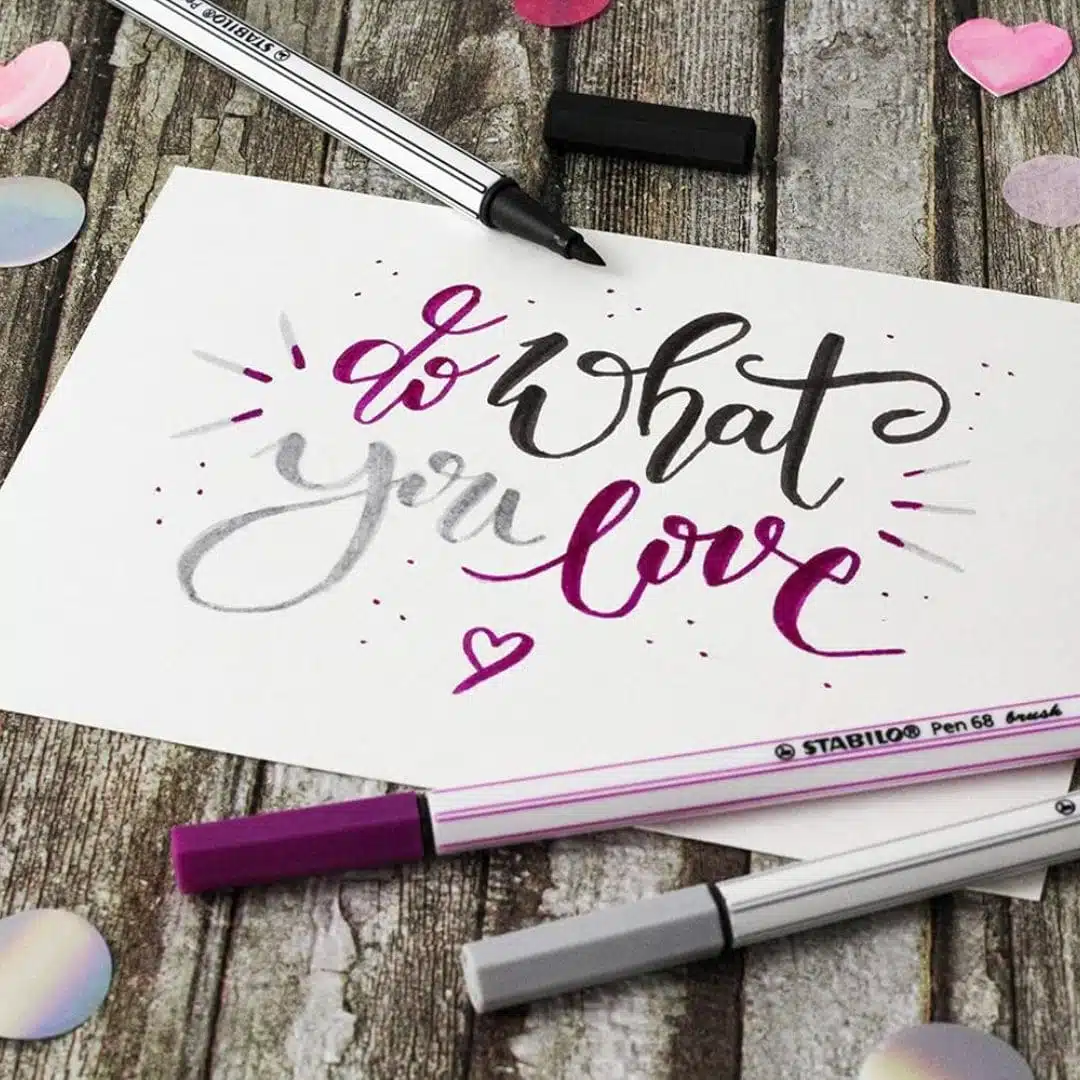 STABILO®
do what
you love
STABILO® Pen 68 brush